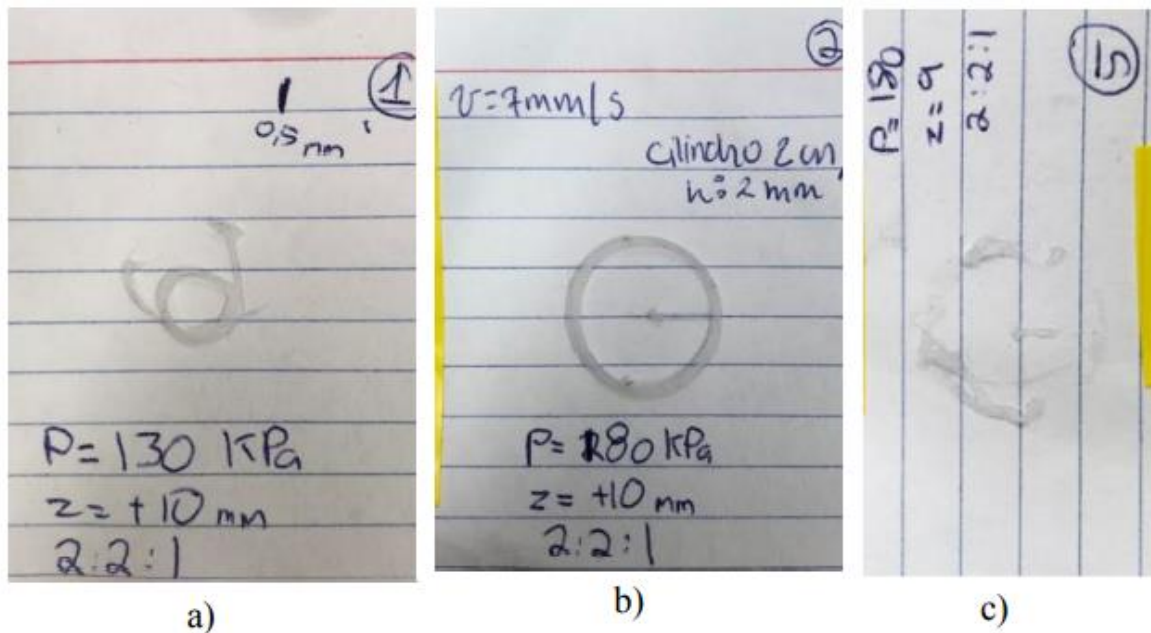 1
0,5 mm
P= 130 KPa
z= +10 mm
2:2:1
a)
2
v=7mm/s
Cilindro 2 cm
h: 2 mm
P= 180 KPa
z= +10 mm
2:2:1
b)
5
P=180
z=9
2:2:1
c)